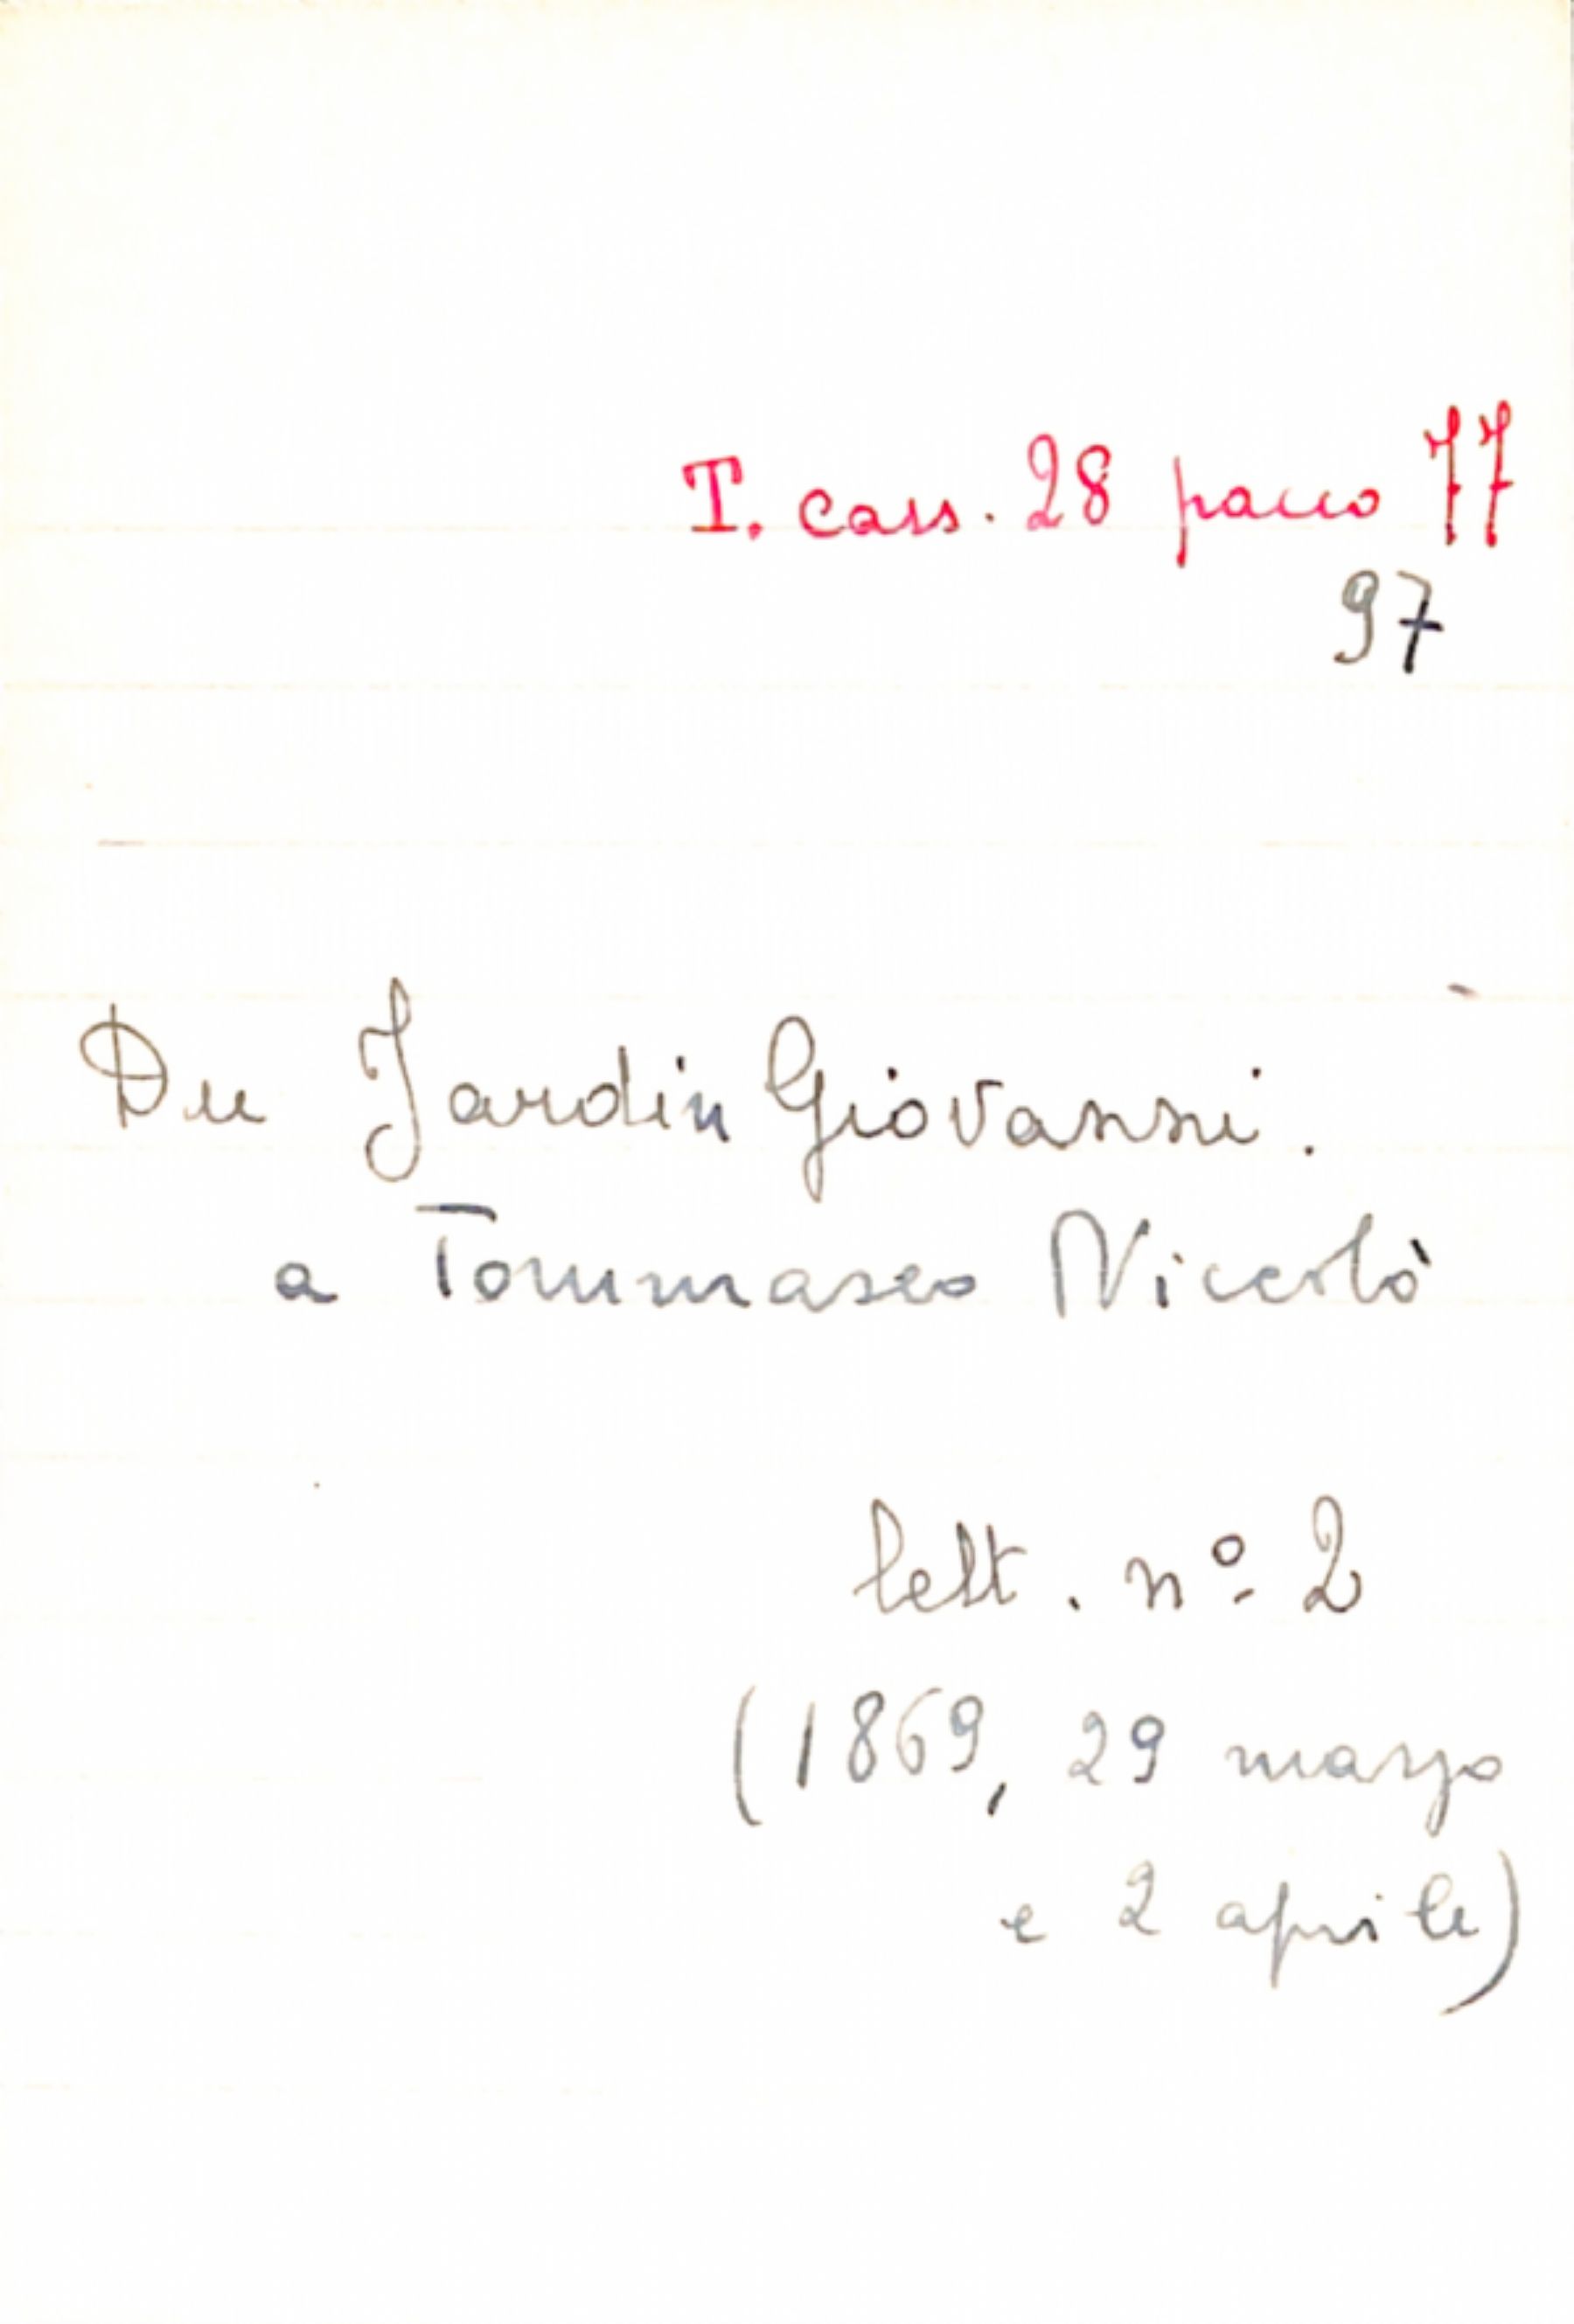 T. cass. 28 pacco 77
97
Du Jardin Giovanni.
a Tommaseo Niccolò
lett. nº 2
(1869, 29 marzo
e 2 aprile)